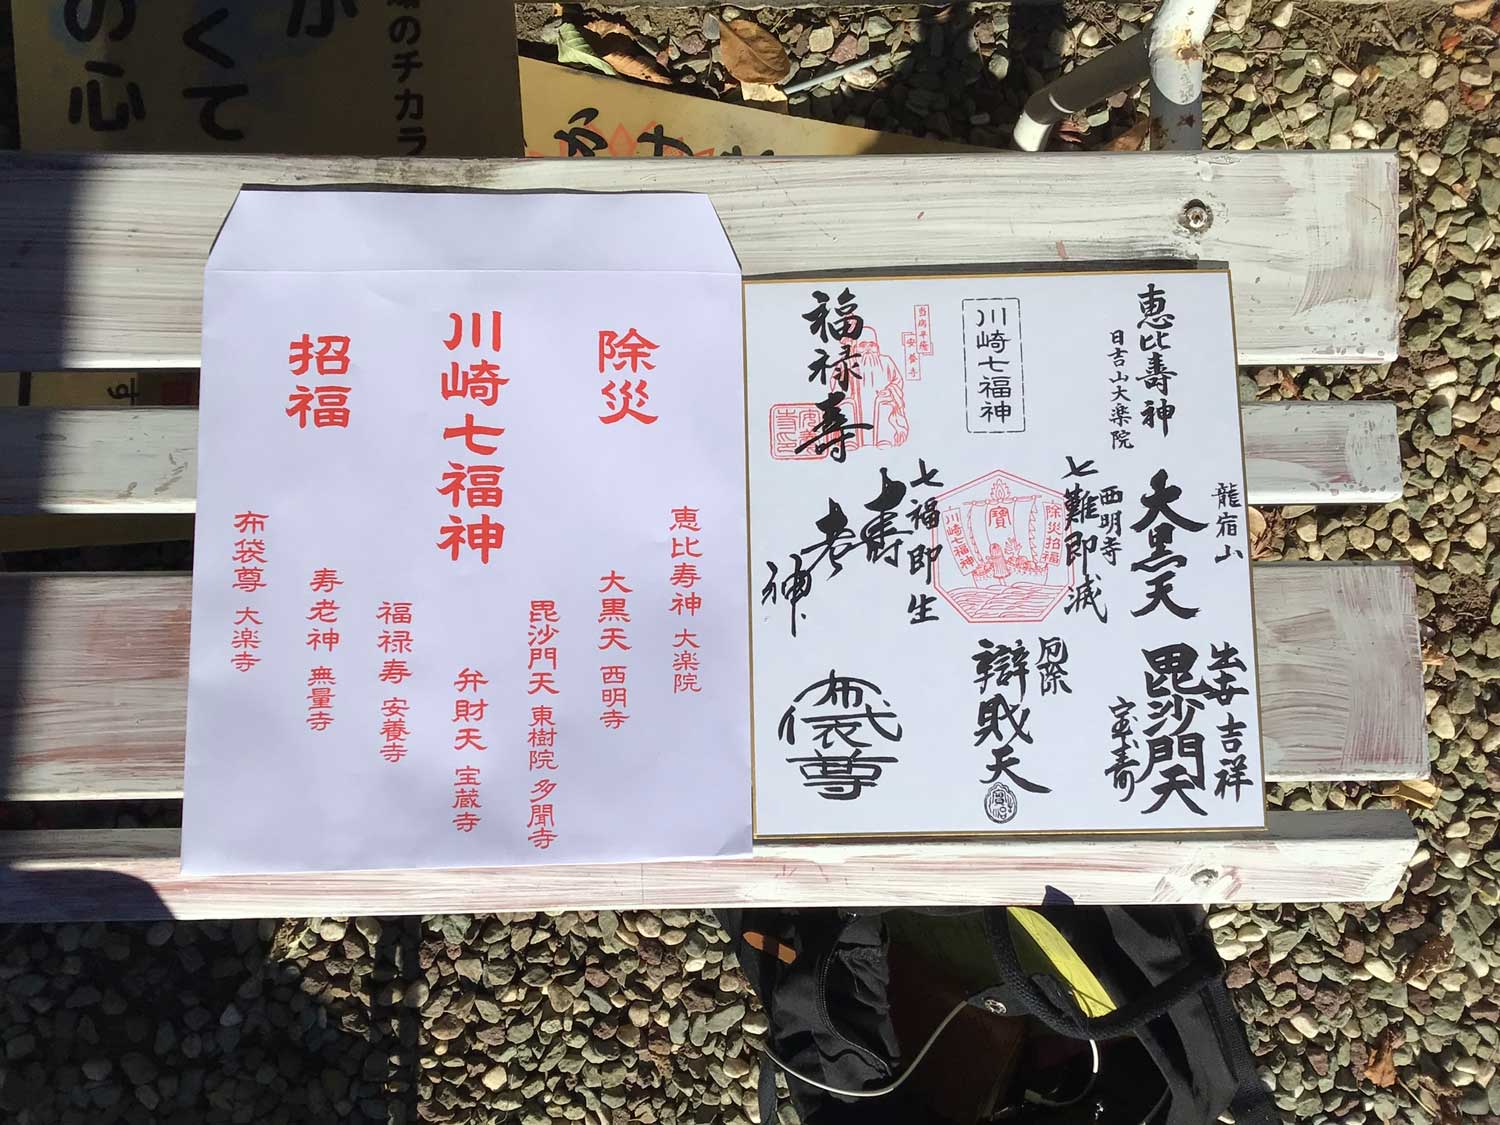 の心
くて
が
のチカラ
除災
川崎七福神
招福
恵比寿神 大楽院
大黒天 西明寺
毘沙門天 東樹院 多聞寺
弁財天 宝蔵寺
福禄寿 安養寺
寿老神 無量寺
布袋尊 大楽寺
恵比壽神
日吉山大楽院
川崎七福神
福禄寿
当病平癒
安養寺
龍宿山
大黒天
西明寺
七難即滅
除災招福
寶
川崎七福神
七福即生
寿老神
出世吉祥
毘沙門天
厄除
辯財天
布袋尊